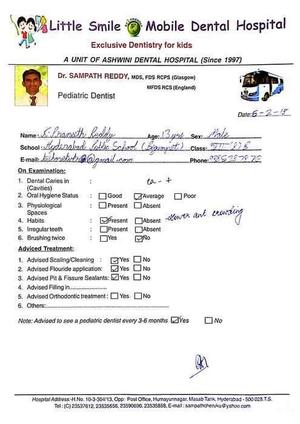 Little Smile Mobile Dental Hospital
Exclusive Dentistry for kids
A UNIT OF ASHWINI DENTAL HOSPITAL (Since 1997)
Dr. SAMPATH REDDY, MDS, FDS RCPS (Glasgow)
MFDS RCS (England)
Pediatric Dentist
Date: 6-2-15
Name: S. Praneeth Reddy Age: 13 yrs Sex: Male
School: Hyderabad Public School (Begumpet) Class:
E-mail: @gmail.com Phone:
On Examination:
1. Dental Caries in (Cavities) :
2. Oral Hygiene Status : Good Average Poor
3. Physiological Spaces : Present Absent
4. Habits : Present Absent lower ant crowding
5. Irregular teeth : Present Absent
6. Brushing twice : Yes No
Adviced Treatment:
1. Advised Scaling/Cleaning : Yes No
2. Advised Flouride application: Yes No
3. Advised Pit & Fissure Sealants: Yes No
4. Advised Filling in
5. Advised Orthodontic treatment : Yes No
6. Others:
Note: Advised to see a pediatric dentist every 3-6 months Yes No
Hospital Address:-H.No. 10-3-304/13, Opp: Post Office, Humayunnagar, Masab Tank, Hyderabad - 500 028 T.S.
Tel : (C) 23537612, 23535656, 23590696, 23535858, E-mail :